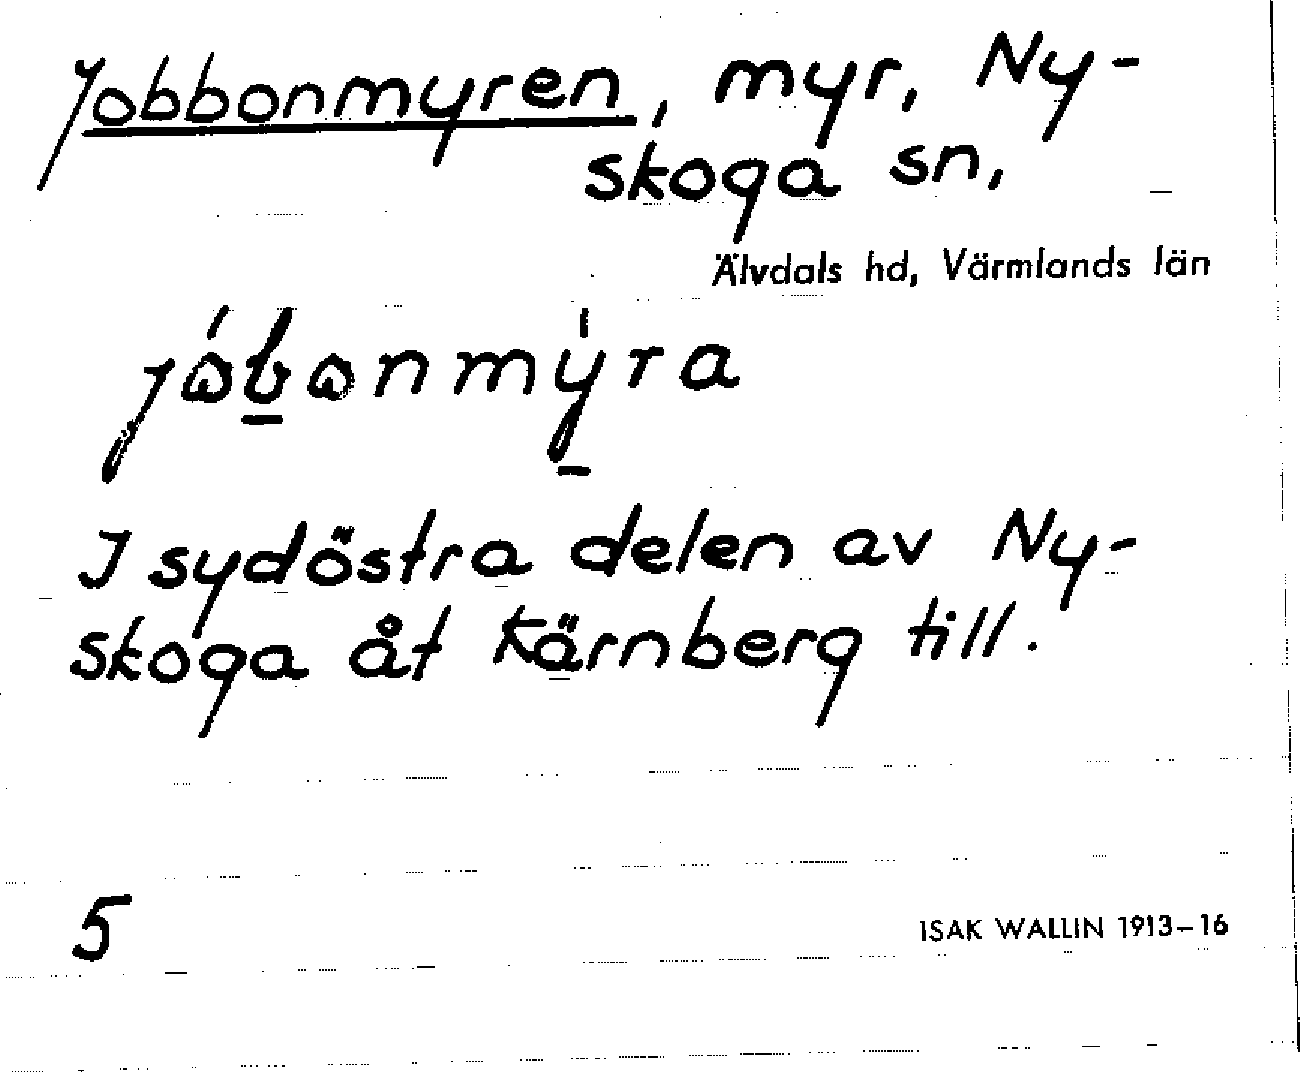 Jobbonmyren, myr, Ny-
skoga sn,
Älvdals hd, Värmlands län
jóbonmýra
I sydöstra delen av Ny-
skoga åt Kärnberg till.
5
ISAK WALLIN 1913-16